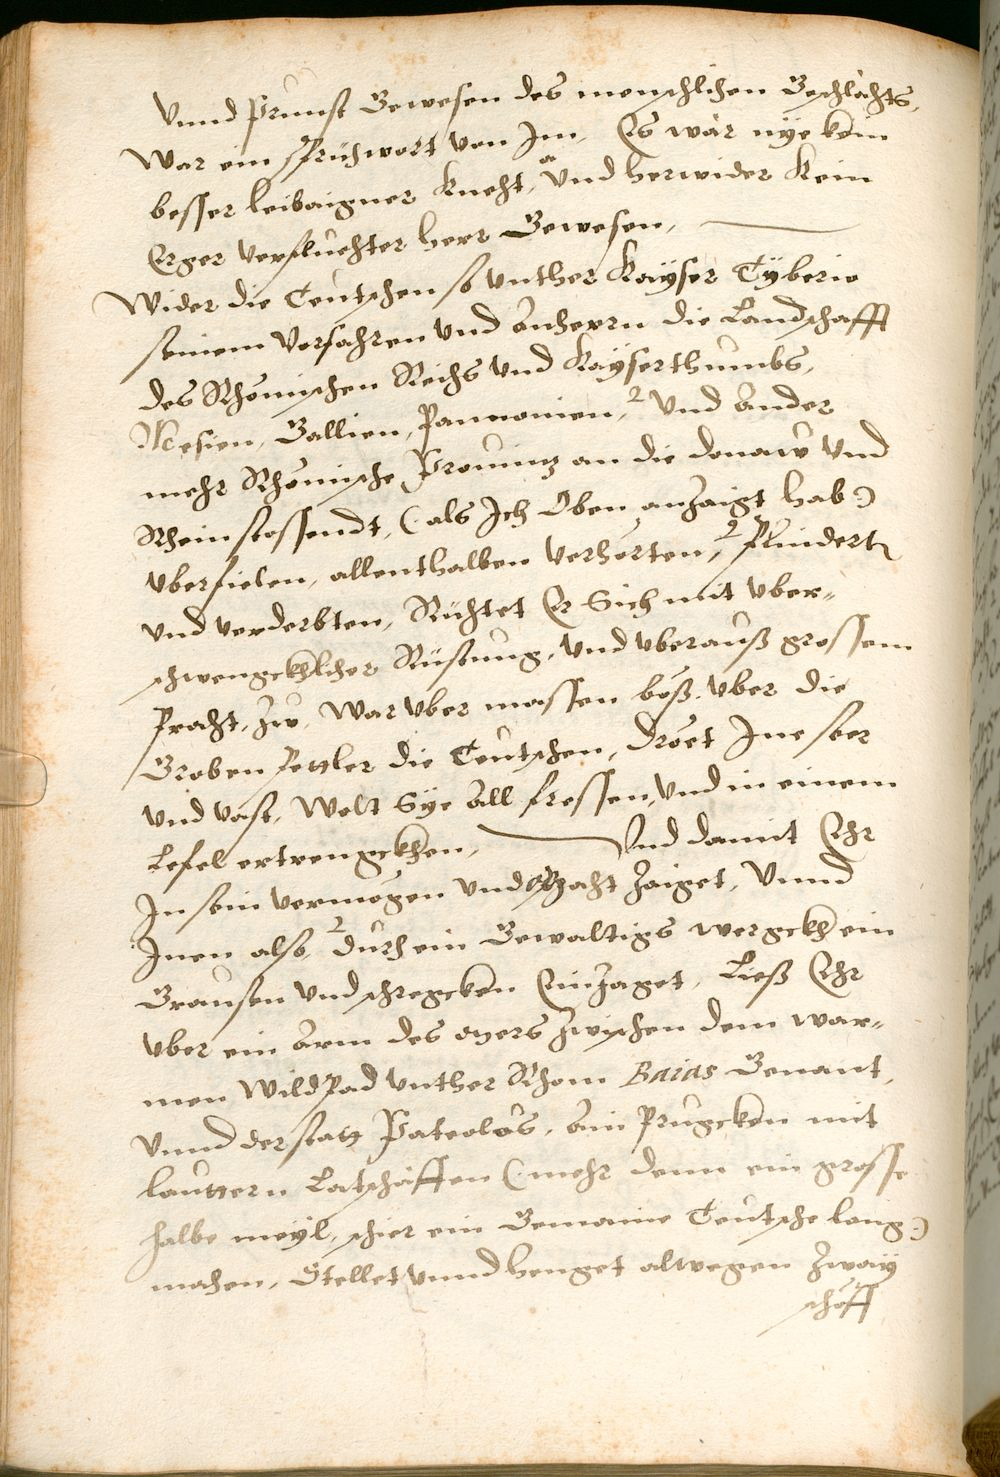 Vnnd Prunst Gewesen des menschlichen Geschlächts,
War ein Sprichwort von Im, Es wär nÿe kein
besser leibaigner Knecht, Vnd herwider Kein
Erger verfluechter herr Gewesen,
Wider die Teutschen so vnther Kaÿser Tÿberio
seinem Vorfahren vnd Anherrn die Landschafft
des Rhömischen Reichs vnd Kaÿserthumbs,
Mesien, Gallien, Pannonien, Vnd Ander
mehr Rhömische Prouintz an die donaw vnd
Rhein stossendt, (: als Ich Oben anzaigt hab :)
vberfielen, allenthalben verhörten, Plinderten
vnd verderbten, Richtet Er Sich mit vber-
schwengckhlicher Rüstung, vnd vberauß grossem
Pracht, zu, War vber massen böß vber die
Groben Pettler die Teutschen, Dröet Ine seer
vnd vast, Wolt Sÿe All fressen, vnd in einem
Lefel ertrengckhen, Vnd damit Ehr
In sein vermögen vnd Macht zaiget, Vnnd
Inen also durch ein Gewaltigs wergckh ein
Grausen vnd schregcken Einjaget, Ließ Ehr
vber ein Arm des Mers zwischen dem war-
men Wildpad vnther Rhom Baias Genant,
Vnnd der statt Pateolos, Ain Prugcken mit
lauttern Latschäffen (: mehr denn ein grosse
halbe meÿl, schier ein Gemaine Teutsche lang :)
machen, Stellet vnnd henget alwegen zwaÿ
schöff